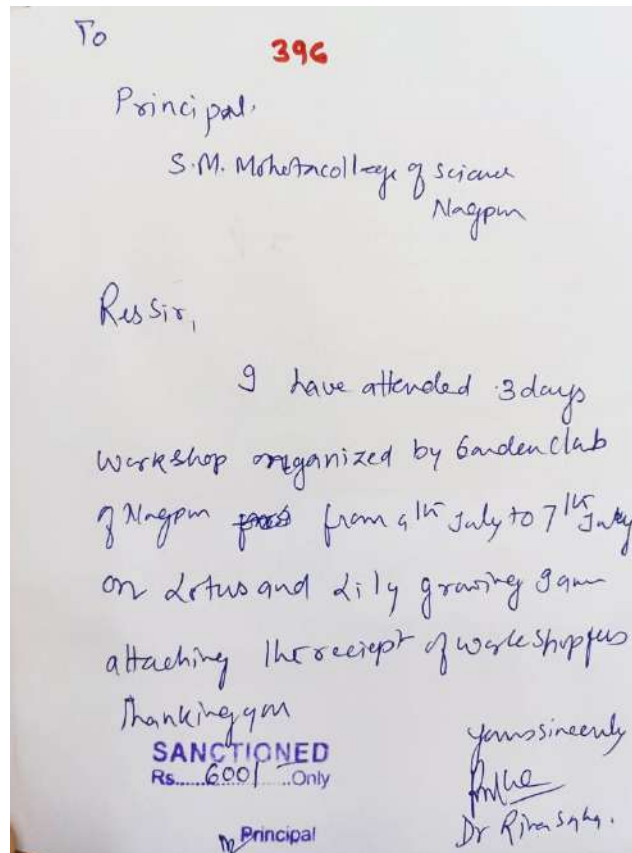 To
396
Principal.
S.M. Mohota college of science
Nagpur
Res Sir,
I have attended 3 days
workshop organized by Garden club
of Nagpur from 4th July to 7th July
on Lotus and Lily growing I am
attaching the reciept of workshop fees
Thanking you
SANCTIONED
Rs......600/-....Only
Principal
Yours sincerely
Dr